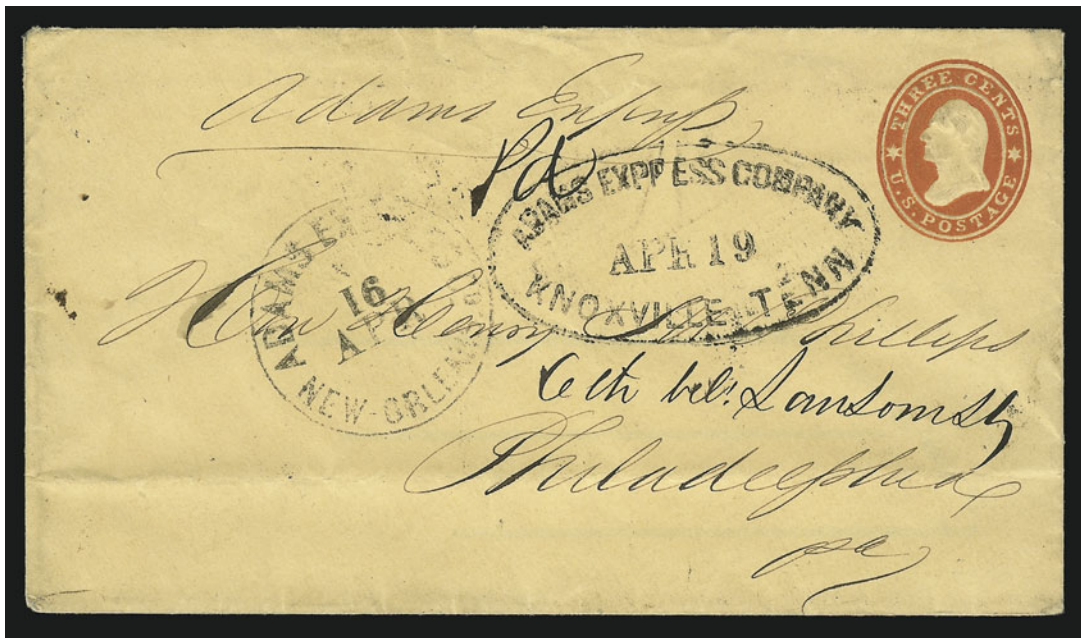 Adams Express
THREE CENTS
U.S. POSTAGE
Pd
ADAMS EXPRESS COMPANY
APR 19
KNOXVILLE. TENN
ADAMS EX
16
APR
NEW-ORLEANS
Hon Henry M. Phillips
6th bel. Sansom St
Philadelphia
pa